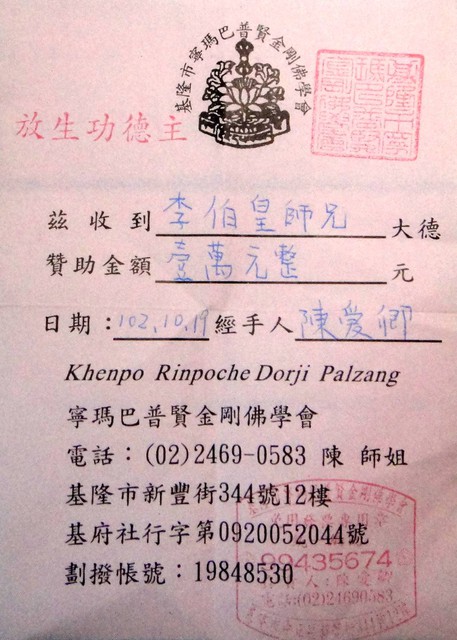 基隆市寧瑪巴普賢金剛佛學會
放生功德主
茲收到 李伯皇師兄 大德
贊助金額 壹萬元整 元
日期：102.10.19 經手人 陳愛卿
Khenpo Rinpoche Dorji Palzang
寧瑪巴普賢金剛佛學會
電話：(02)2469-0583 陳 師姐
基隆市新豐街344號12樓
基府社行字第0920052044號
劃撥帳號：19848530
99435674
電話:(02)24690583